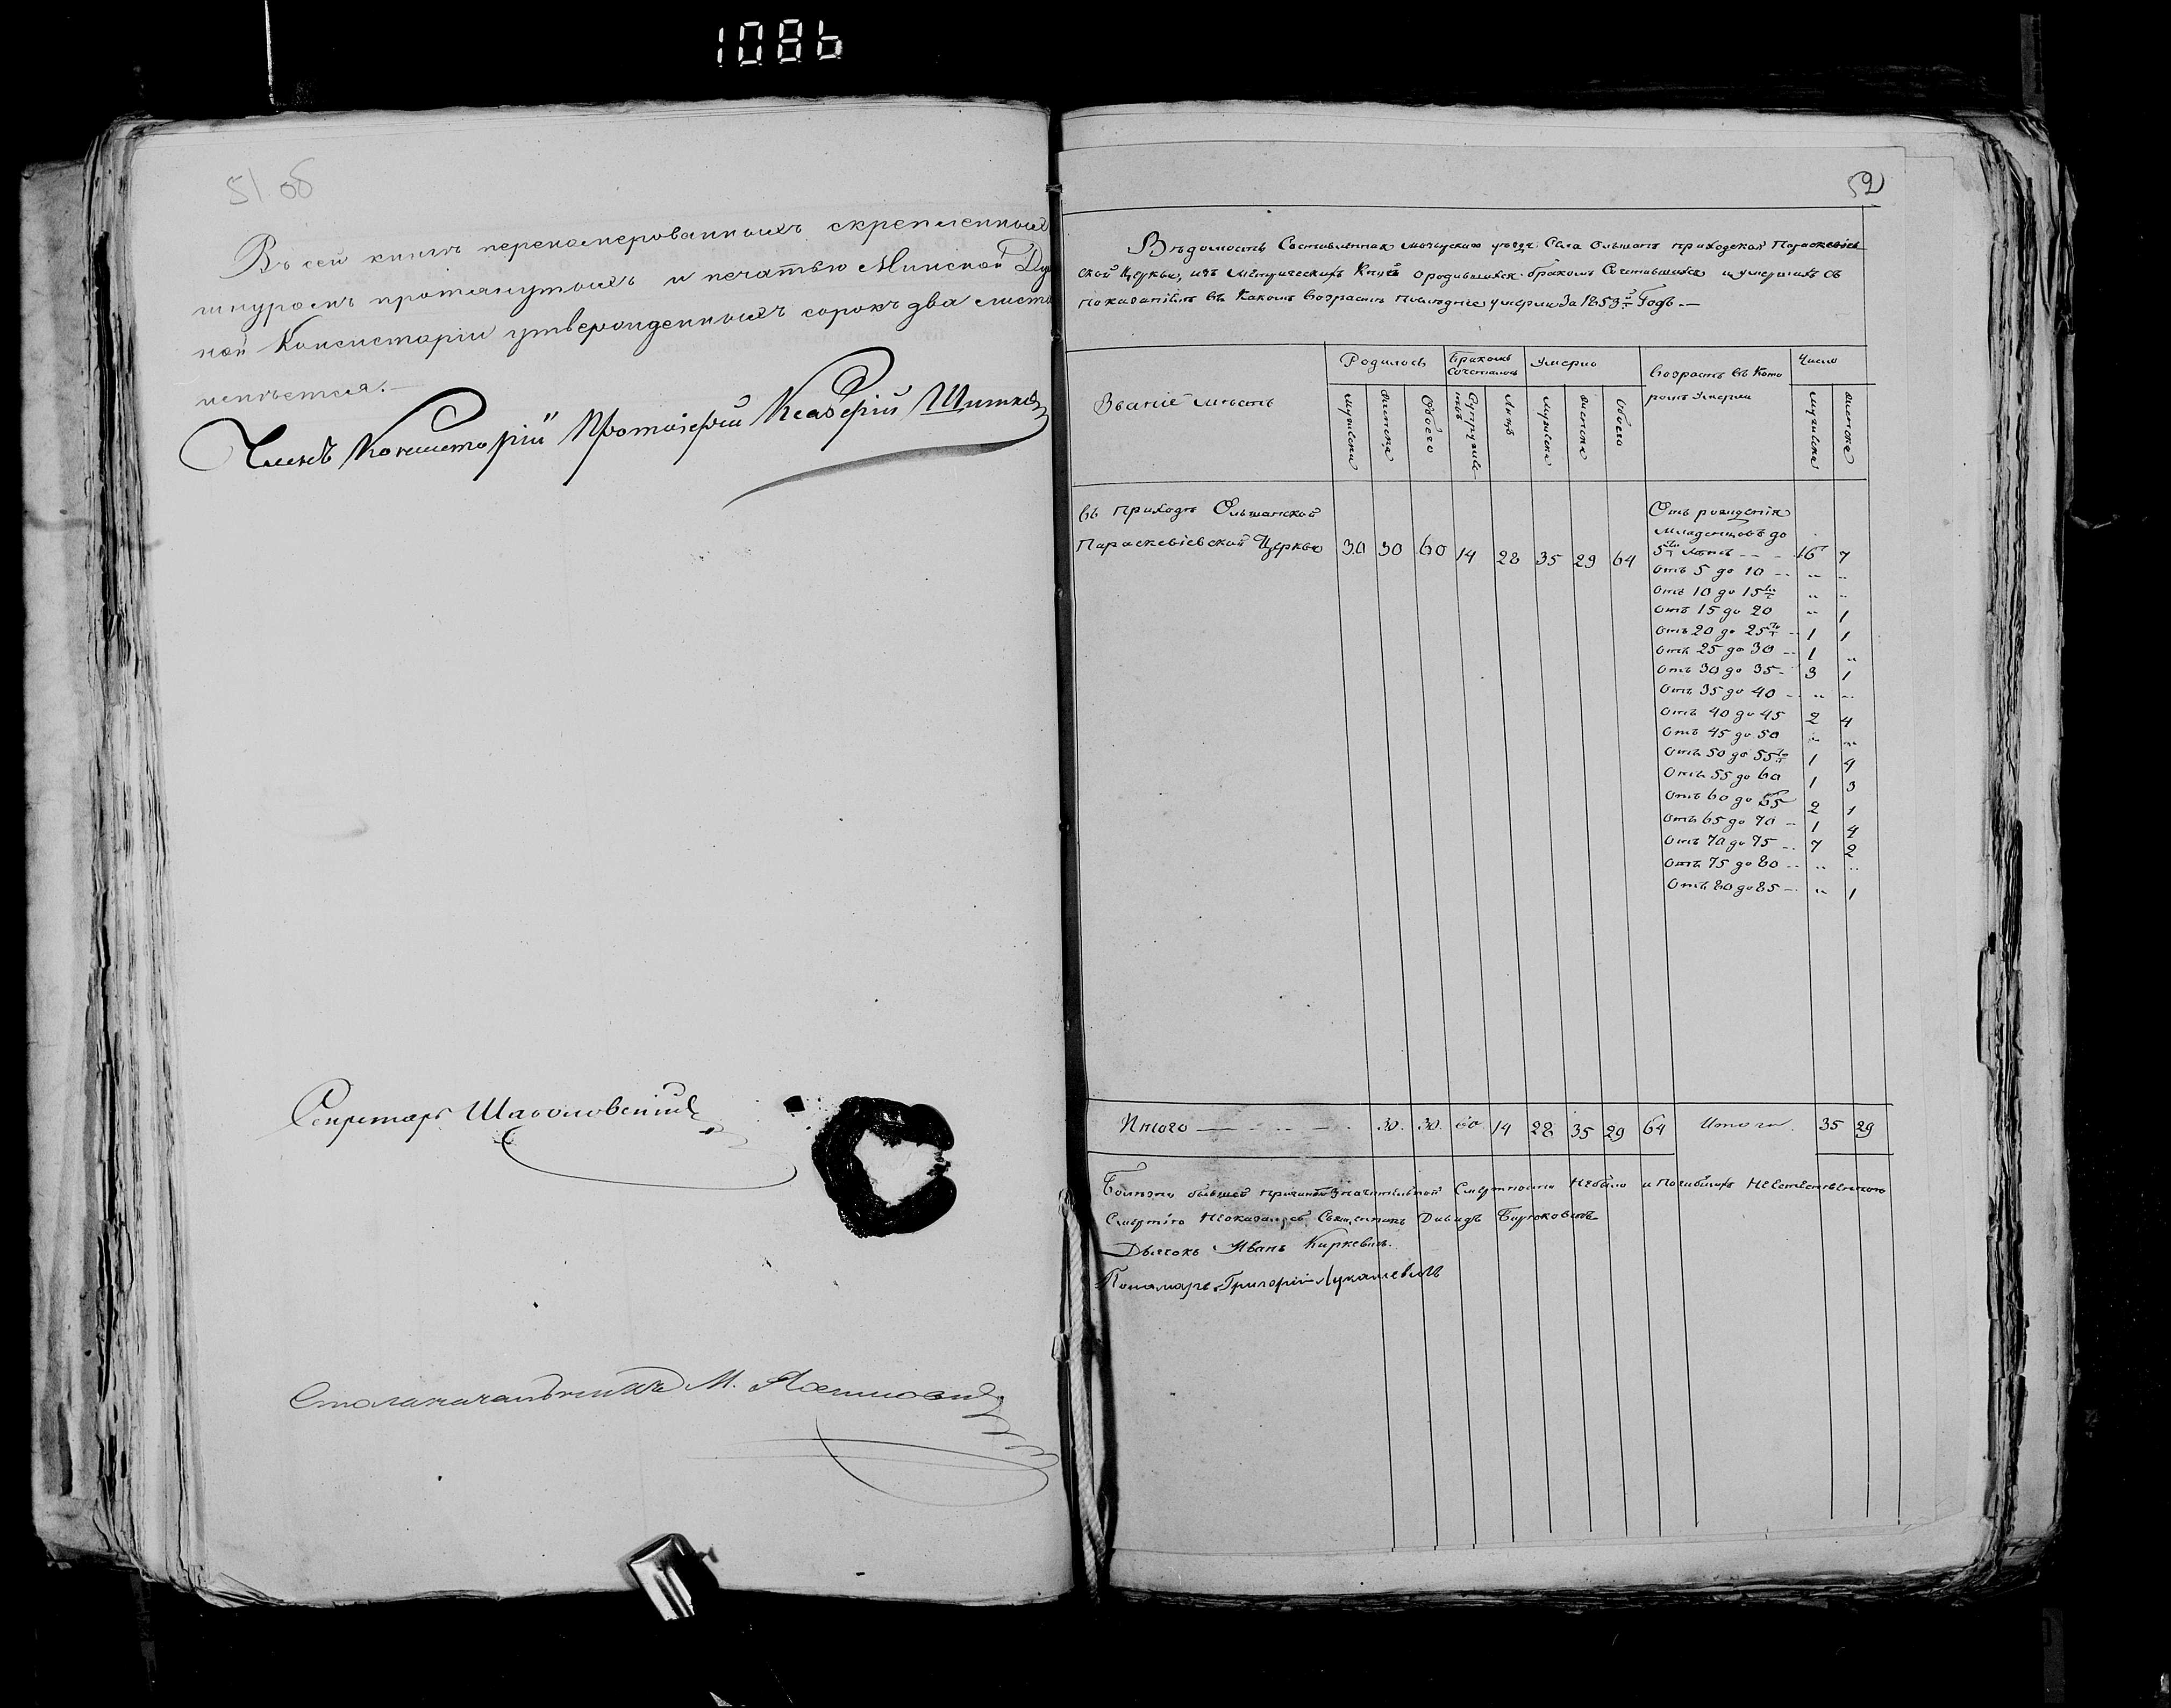 1086
51 об
Въ сей книгѣ перенамерованныхъ скрепленныхъ
шнуромъ протянутыхъ и печатью Минской Дух
ной Консисторіи утвержденныхъ сорокъ два листа
имѣется.—
Членъ Консисторіи Протоіерей Ксаверій
Секретарь
Столоначальникъ М.
52
Вѣдомость Составленная Мозырскаго уѣзда Села Ольшанъ приходской Параскевіев
ской Церкви, изъ Метрическихъ Книгъ о родившихся бракомъ Сочетавшихся и умершихъ съ
показаніемъ въ Какомъ возрастѣ последніе умерли За 1853й Годъ.—
Званіе мѣстъ
Родилось
Бракомъ сочеталось
Умерло
Возрастъ въ кото
ромъ Умерли
Число
Мужеска
Женска
Обоего
Супружествъ
Лицъ
Мужеска
Женска
Обоего
Мужеска
Женска
въ приходѣ Ольшанской
Параскевіевской Церкви 30 30 60 14 28 35 29 64
Отъ рожденія
Младенцовъ до
5ти лѣтъ - - - 16 7
Отъ 5 до 10 - - " "
Отъ 10 до 15ти " "
Отъ 15 до 20 " 1
Отъ 20 до 25ти - 1 1
Отъ 25 до 30 - 1 "
Отъ 30 до 35 - 3 1
Отъ 35 до 40 - " "
Отъ 40 до 45 2 4
Отъ 45 до 50 " "
Отъ 50 до 55ти 1 4
Отъ 55 до 60 1 3
Отъ 60 до 65 2 1
Отъ 65 до 70 - 1 4
Отъ 70 до 75 - 7 2
Отъ 75 до 80 - " "
Отъ 80 до 85 - " 1
Итого — - - — - 30. 30. 60 14 28 35 29 64 Итого 35 29
Болѣзни бывшей причиною значительной Смертности Небыло и погибшихъ Неестественною
Смертію Неоказалось Священникъ Давидъ
Дьячокъ Иванъ Киркевичъ.
Пономарь Григорій Лукашевичъ